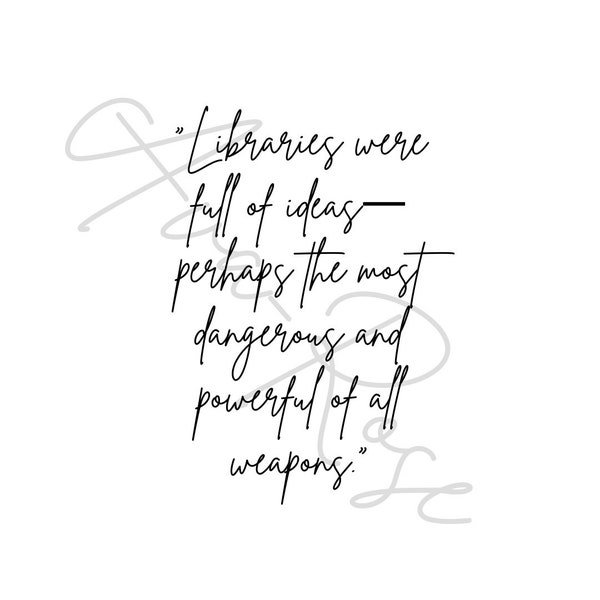 "Libraries were
full of ideas—
perhaps the most
dangerous and
powerful of all
weapons."
Rose